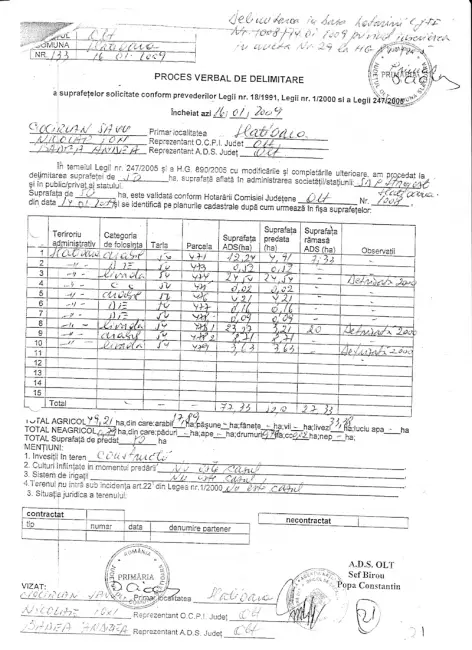 JUDEȚUL Olt
COMUNA Slatioara
NR. 133 16 01 2009
Delimitarea in baza Hotararii CJFF
Nr. 1008/14.01 2009 privind inscrierea
in anexa Nr 29 la HG
PROCES VERBAL DE DELIMITARE
a suprafețelor solicitate conform prevederilor Legii nr. 18/1991, Legii nr. 1/2000 si a Legii 247/2005
Încheiat azi 16, 01, 2009
COCIRLAN SAVU Primar localitatea Slatioara
NICOLAE ION Reprezentant O.C.P.I. Județ Olt
BADEA ANDREA Reprezentant A.D.S. Județ Olt
În temeiul Legii nr. 247/2005 și a H.G. 890/2005 cu modificările și completările ulterioare, am procedat la
delimitarea suprafeței de 50 ha, suprafață aflată în administrarea societății/stațiunii
și în public/privat al statului.
Suprafața de 50 ha, este validată conform Hotarârii Comisiei Județene Olt Nr. 1008
din data 14 01 2009 și se identifică pe planurile cadastrale după cum urmează în fișa suprafețelor:
Teritroriu administrativ Categoria de folosința Tarla Parcela Suprafata ADS (ha) Suprafata predata (ha) Suprafata rămasă ADS (ha) Observatii
1 Slatioara arabil 54 471 12,24 4,91 7,33 -
2 -"- 54 473 0,12 0,12 - -
3 -"- livada 54 474 24,54 24,54 - Defrisata 2000
4 -"- 54 0,02 0,02 - -
5 -"- arabil 54 476 4,21 4,21 - -
6 -"- 54 477 0,16 0,16 - -
7 -"- 54 0,09 0,09 - -
8 -"- livada 54 478/1 3,21 20 Defrisata 2000
9 -"- arabil 54 478/2 8,71 8,71 - -
10 -"- livada 54 479 3,63 3,63 - Defrisata 2000
11
12
13
14
15
Total - - - -
TOTAL AGRICOL 49,21 ha,din care:arabil 17,83 ha;pășune - ha;fânețe - ha;vii - ha;livezi ha;luciu apa - ha
TOTAL NEAGRICOL ha,din care:păduri - ha;ape - ha;drumuri ha;cc 0,02 ha;nep - ha;
TOTAL Suprafață de predat ha
MENȚIUNI:
1. Investiții în teren Constructii
2. Culturi înființate in momentul predării Nu este cazul
3. Sistem de irigații Nu este cazul
4.Terenul nu intră sub incidența art.22 din Legea nr.1/2000 Nu este cazul
3. Situația juridica a terenului:
contractat necontractat
tip numar data denumire partener
ROMÂNIA
PRIMĂRIA
A.D.S. OLT
Sef Birou
Popa Constantin
VIZAT:
COCIRLAN SAVU Primar localitatea Slatioara
NICOLAE ION Reprezentant O.C.P.I. Județ Olt
BADEA ANDREA Reprezentant A.D.S. Județ Olt
21